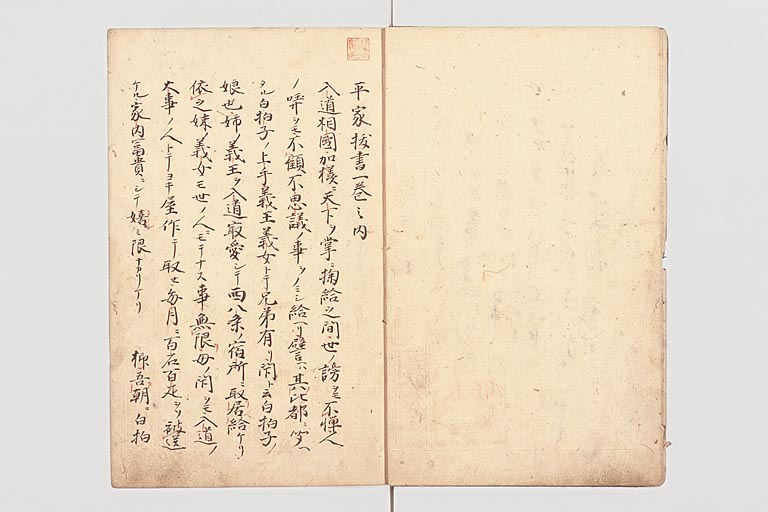 平家抜書一巻之内
入道相國加様ニ天下ヲ掌ニ掬給之間世ノ謗ヲモ不憚人
ノ嘲ヲモ不顧不思議ノ事ヲノミシ給ヘリ譬ハ其比都ニ聞ヘ
タル白拍子ノ上手義王義女トテ兄弟有リ閇ト云白拍子ノ
娘也姉ノ義王ヲ入道最愛シテ西八条ノ宿所ニ取居給ケリ
依之妹ノ義女モ世ノ人モテナス事無限母ノ閇ヲモ入道ノ
大事ノ人トテヨキ屋作テ取セ毎月ニ百石百疋ヲソ被送
ケル家内冨貴ニシテ嬉シミ限ナカリケリ 抑吾朝ニ白拍